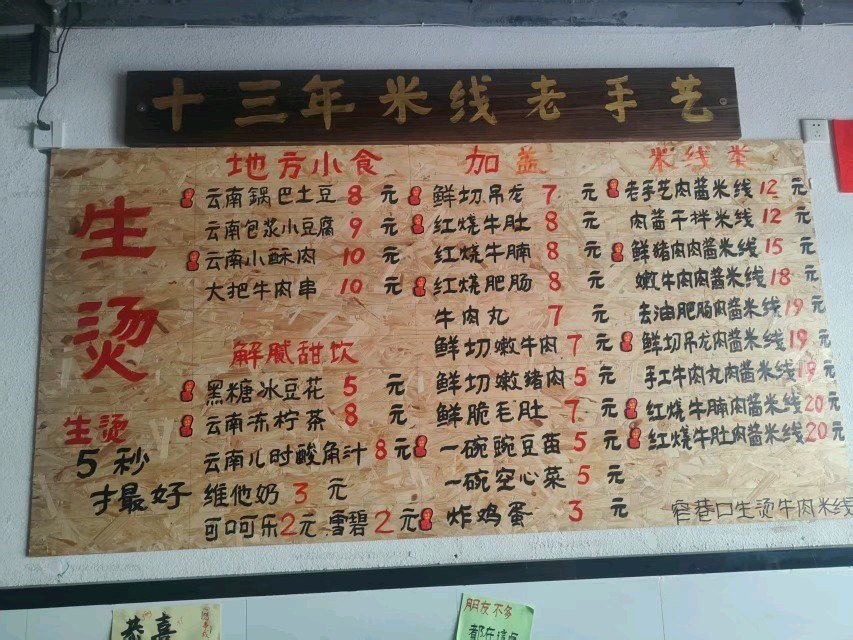 十三年米线老手艺
生烫
生烫
5秒
才最好
地方小食
云南锅巴土豆 8 元
云南包浆小豆腐 9 元
云南小酥肉 10 元
大把牛肉串 10 元
解腻甜饮
黑糖冰豆花 5 元
云南冻柠茶 8 元
云南儿时酸角汁 8 元
维他奶 3 元
可口可乐 2元 雪碧 2 元
加盖
鲜切吊龙 7 元
红烧牛肚 8 元
红烧牛腩 8 元
红烧肥肠 8 元
牛肉丸 7 元
鲜切嫩牛肉 7 元
鲜切嫩猪肉 5 元
鲜脆毛肚 7 元
一碗豌豆苗 5 元
一碗空心菜 5 元
炸鸡蛋 3 元
米线类
老手艺肉酱米线 12 元
肉酱干拌米线 12 元
鲜猪肉肉酱米线 15 元
嫩牛肉肉酱米线 18 元
去油肥肠肉酱米线 19 元
鲜切吊龙肉酱米线 19 元
手工牛肉丸肉酱米线 19 元
红烧牛腩肉酱米线 20 元
红烧牛肚肉酱米线 20 元
窄巷口生烫牛肉米线
恭喜
朋友不多
都在